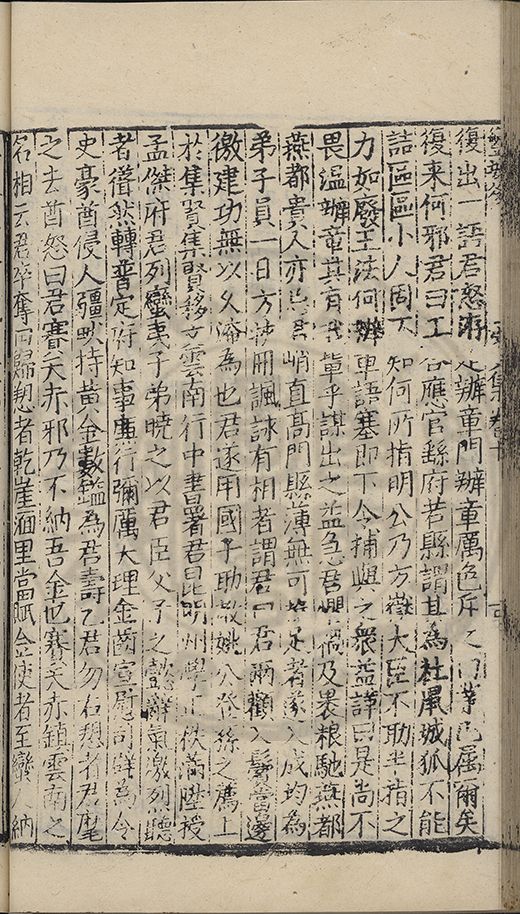 復出一語君怒府定辦章門辦章厲色斥之曰爭已屈爾矣
復来何邪君曰工各應官縣府若縣謂其為社鼠城狐不能
詰區區小人周不知何所指明公乃方嶽大臣不助坐指之
力如廢王法何辦章語塞即下令捕與之衆益譁曰是尚不
畏溫辦章其有我輩乎謀出之益急君懼禍及裹粮馳燕都
燕都貴人亦忌君峭直高門縣薄無可者遂入成均為
弟子員一日方諷詠有相者謂君曰君兩顴入鬢當邊
徼建功無以久淹為也君遂用國子助教姚公登孫之薦上
於集賢集賢移文雲南行中書署君昆明州學正秩滿陞授
孟傑府君列蠻夷子弟曉之以君臣父子之懿辭氣激列聽
者聳然轉普定府知事廉行彌厲大理金齒宣慰司辟為令
史豪酋侵人疆畎持黃金數鎰為君壽乙君勿右愬者君麾
之去酋怒曰君賽矣赤邪乃不納吾金也賽矣赤鎮雲南之
名相云君卒奪田歸愬者乾崖湎里當賦金使者至蠻人納